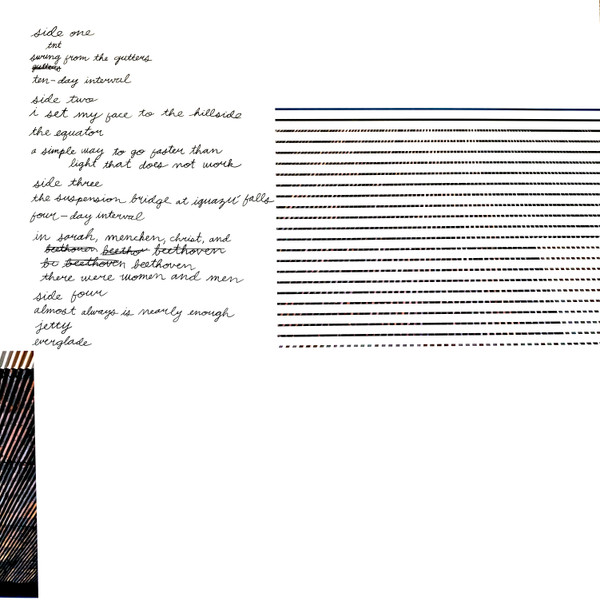 side one
tnt
swung from the gutters
gutters
ten-day interval
side two
i set my face to the hillside
the equator
a simple way to go faster than
light that does not work
side three
the suspension bridge at iguazú falls
four-day interval
in sarah, mencken, christ, and
beethoven beethov beethoven
be beethoven beethoven
there were women and men
side four
almost always is nearly enough
jetty
everglade